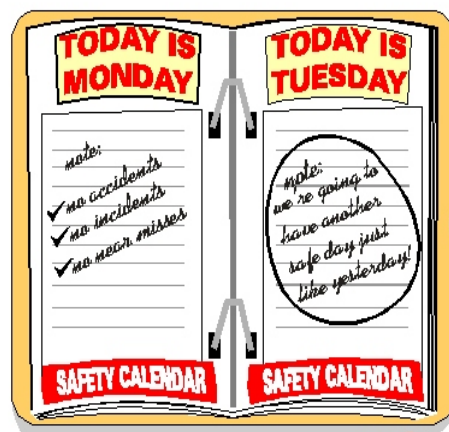 TODAY IS
MONDAY
note:
no accidents
no incidents
no near misses
SAFETY CALENDAR
TODAY IS
TUESDAY
note:
we re going to
have another
safe day just
like yesterday!
SAFETY CALENDAR